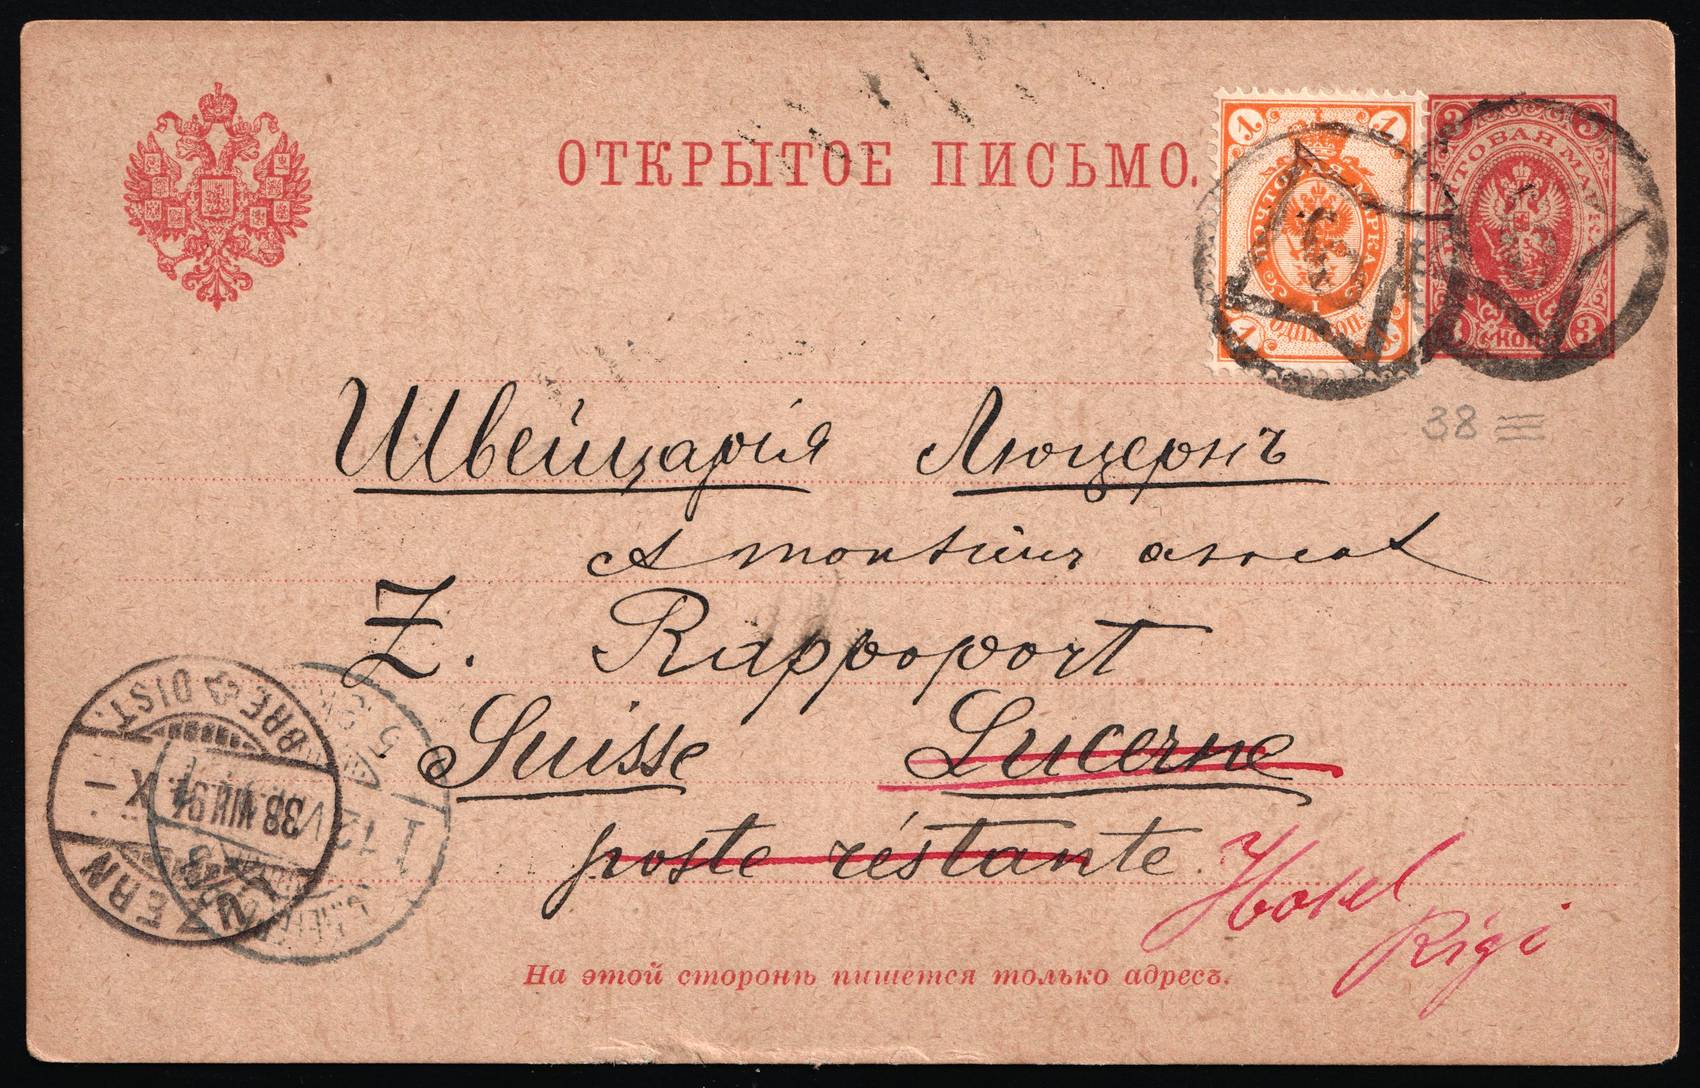 ОТКРЫТОЕ ПИСЬМО.
1 1
ПОЧТОВАЯ МАРКА
1
ОДНА КОП.
1 1
3 3
ПОЧТОВАЯ МАРКА
3 КОП. 3
38
Швейцарія Люцернъ
A monsieur avocat
Z. Rappoport
Suisse Lucerne
poste réstante
Hotel
Rigi
BRF. DIST.
VIII.91
LUZERN
На этой сторонѣ пишется только адресъ.